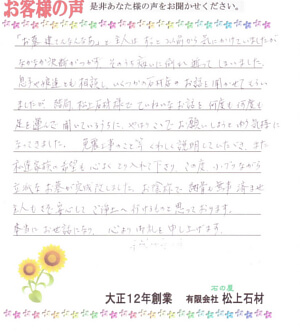 お客様の声 是非あなた様の声をお聞かせください。
「お墓建てんとなあ」と主人は 前から気にかけていましたが
なかなか決断がつかず、そのうち病いに倒れ逝ってしまいました。
息子や親達とも相談し、いくつかの石材店のお話を聞かせてもらい
ましたが、結局、松上石材様のていねいなお話を何度も何度も
足を運んで聞いているうちに、やはりここでお願いしようと ゆう気持に
なってきました。 墓事のこと等くわしく説明していただき、また
私達家族の希望も心よくとり入れて下さり、この度、小ぶりながら
立派なお墓が完成いたしました。お陰様で納骨も無事済ませ
主人も安心してご浄土へ行けるものと思っております。
本当にお世話になり、心より御礼を申し上げます。
大正12年創業 有限会社 石の屋 松上石材